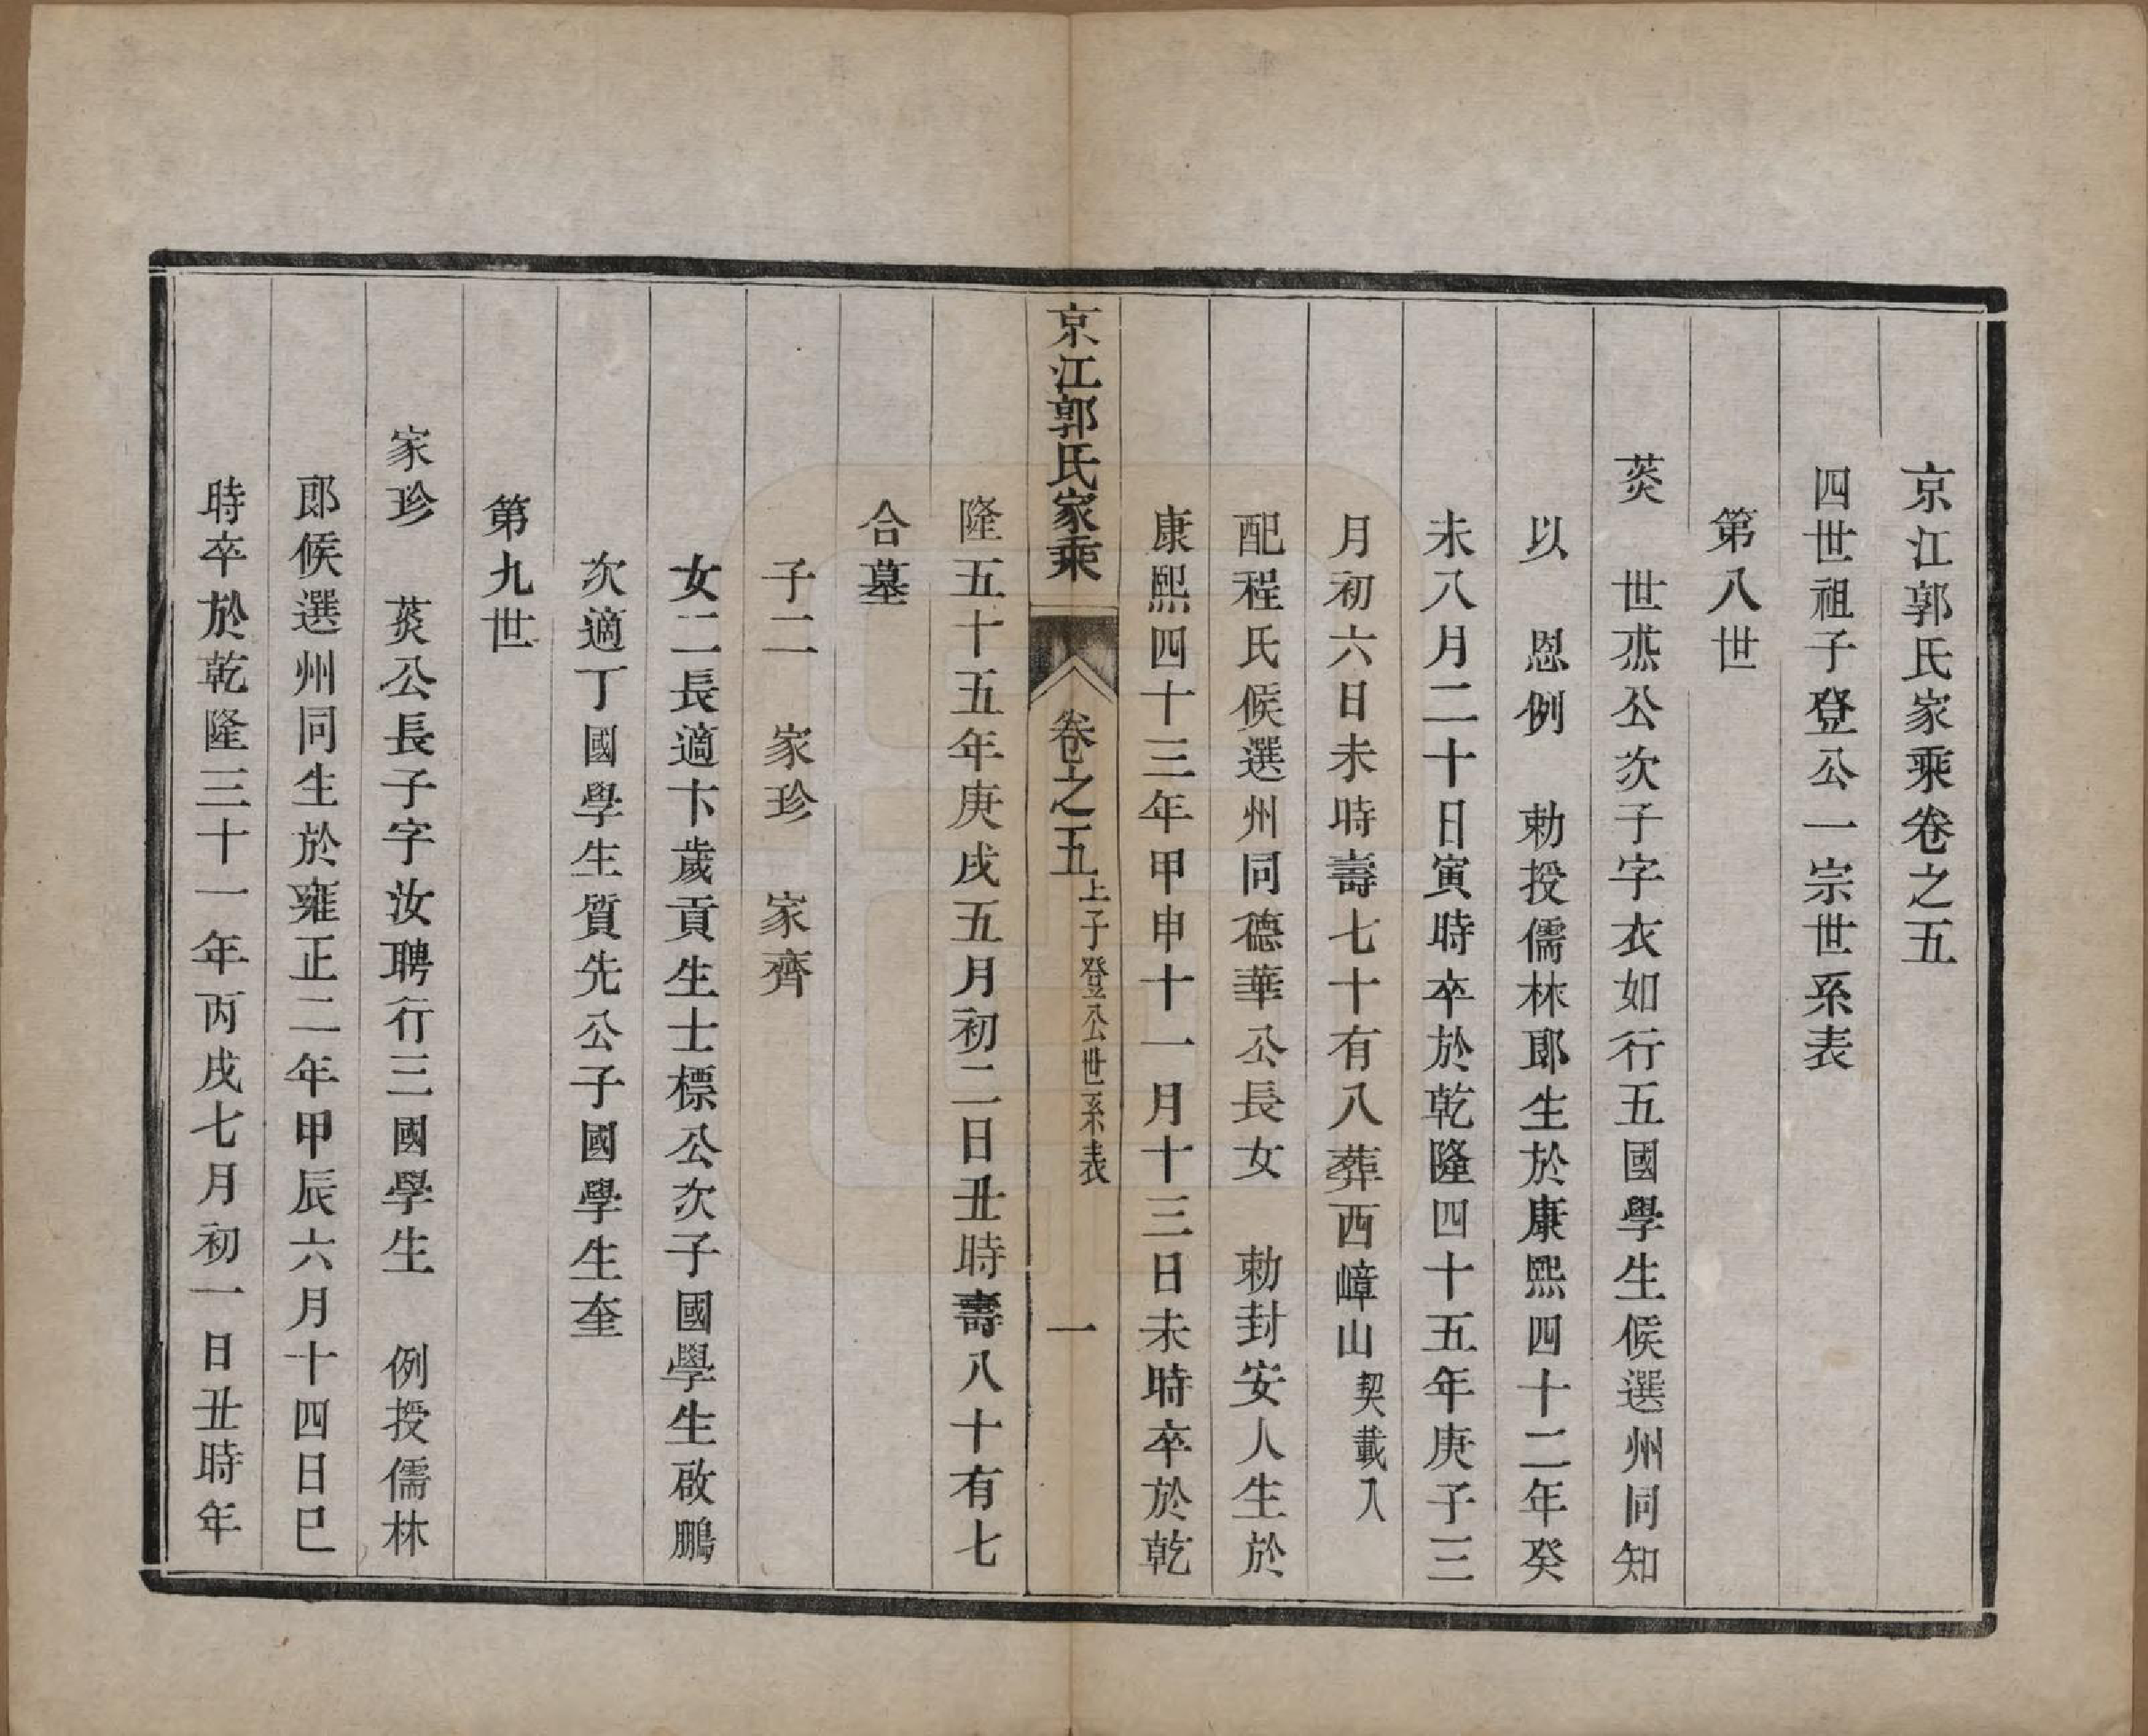 京江郭氏家乘卷之五
四世祖子登公一宗世系表
第八世
葵 世燕公次子字衣如行五國學生候選州同知
以 恩例 勅授儒林郎生於康熙四十二年癸
未八月二十日寅時卒於乾隆四十五年庚子三
月初六日未時壽七十有八葬西嶂山契載入
配程氏候選州同德華公長女 勅封安人生於
康熙四十三年甲申十一月十三日未時卒於乾
京江郭氏家乘 卷之五 上子登公世系表 一
隆五十五年庚戌五月初二日丑時壽八十有七
合墓
子二 家珍 家齊
女二長適卞歲貢生士標公次子國學生啟鵬
次適丁國學生質先公子國學生奎
第九世
家珍 葵公長子字汝聘行三國學生 例授儒林
郎候選州同生於雍正二年甲辰六月十四日巳
時卒於乾隆三十一年丙戌七月初一日丑時年